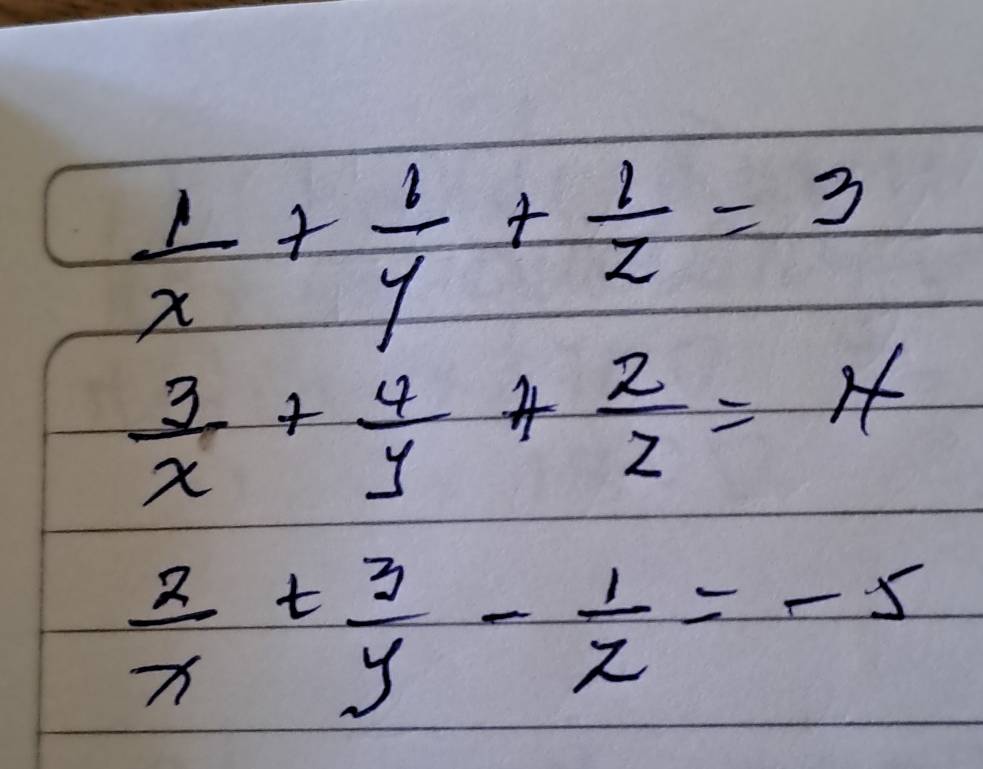 1/x + 1/y + 1/z = 3
3/x + 4/y + 2/z = 4
2/x + 3/y - 1/z = -5